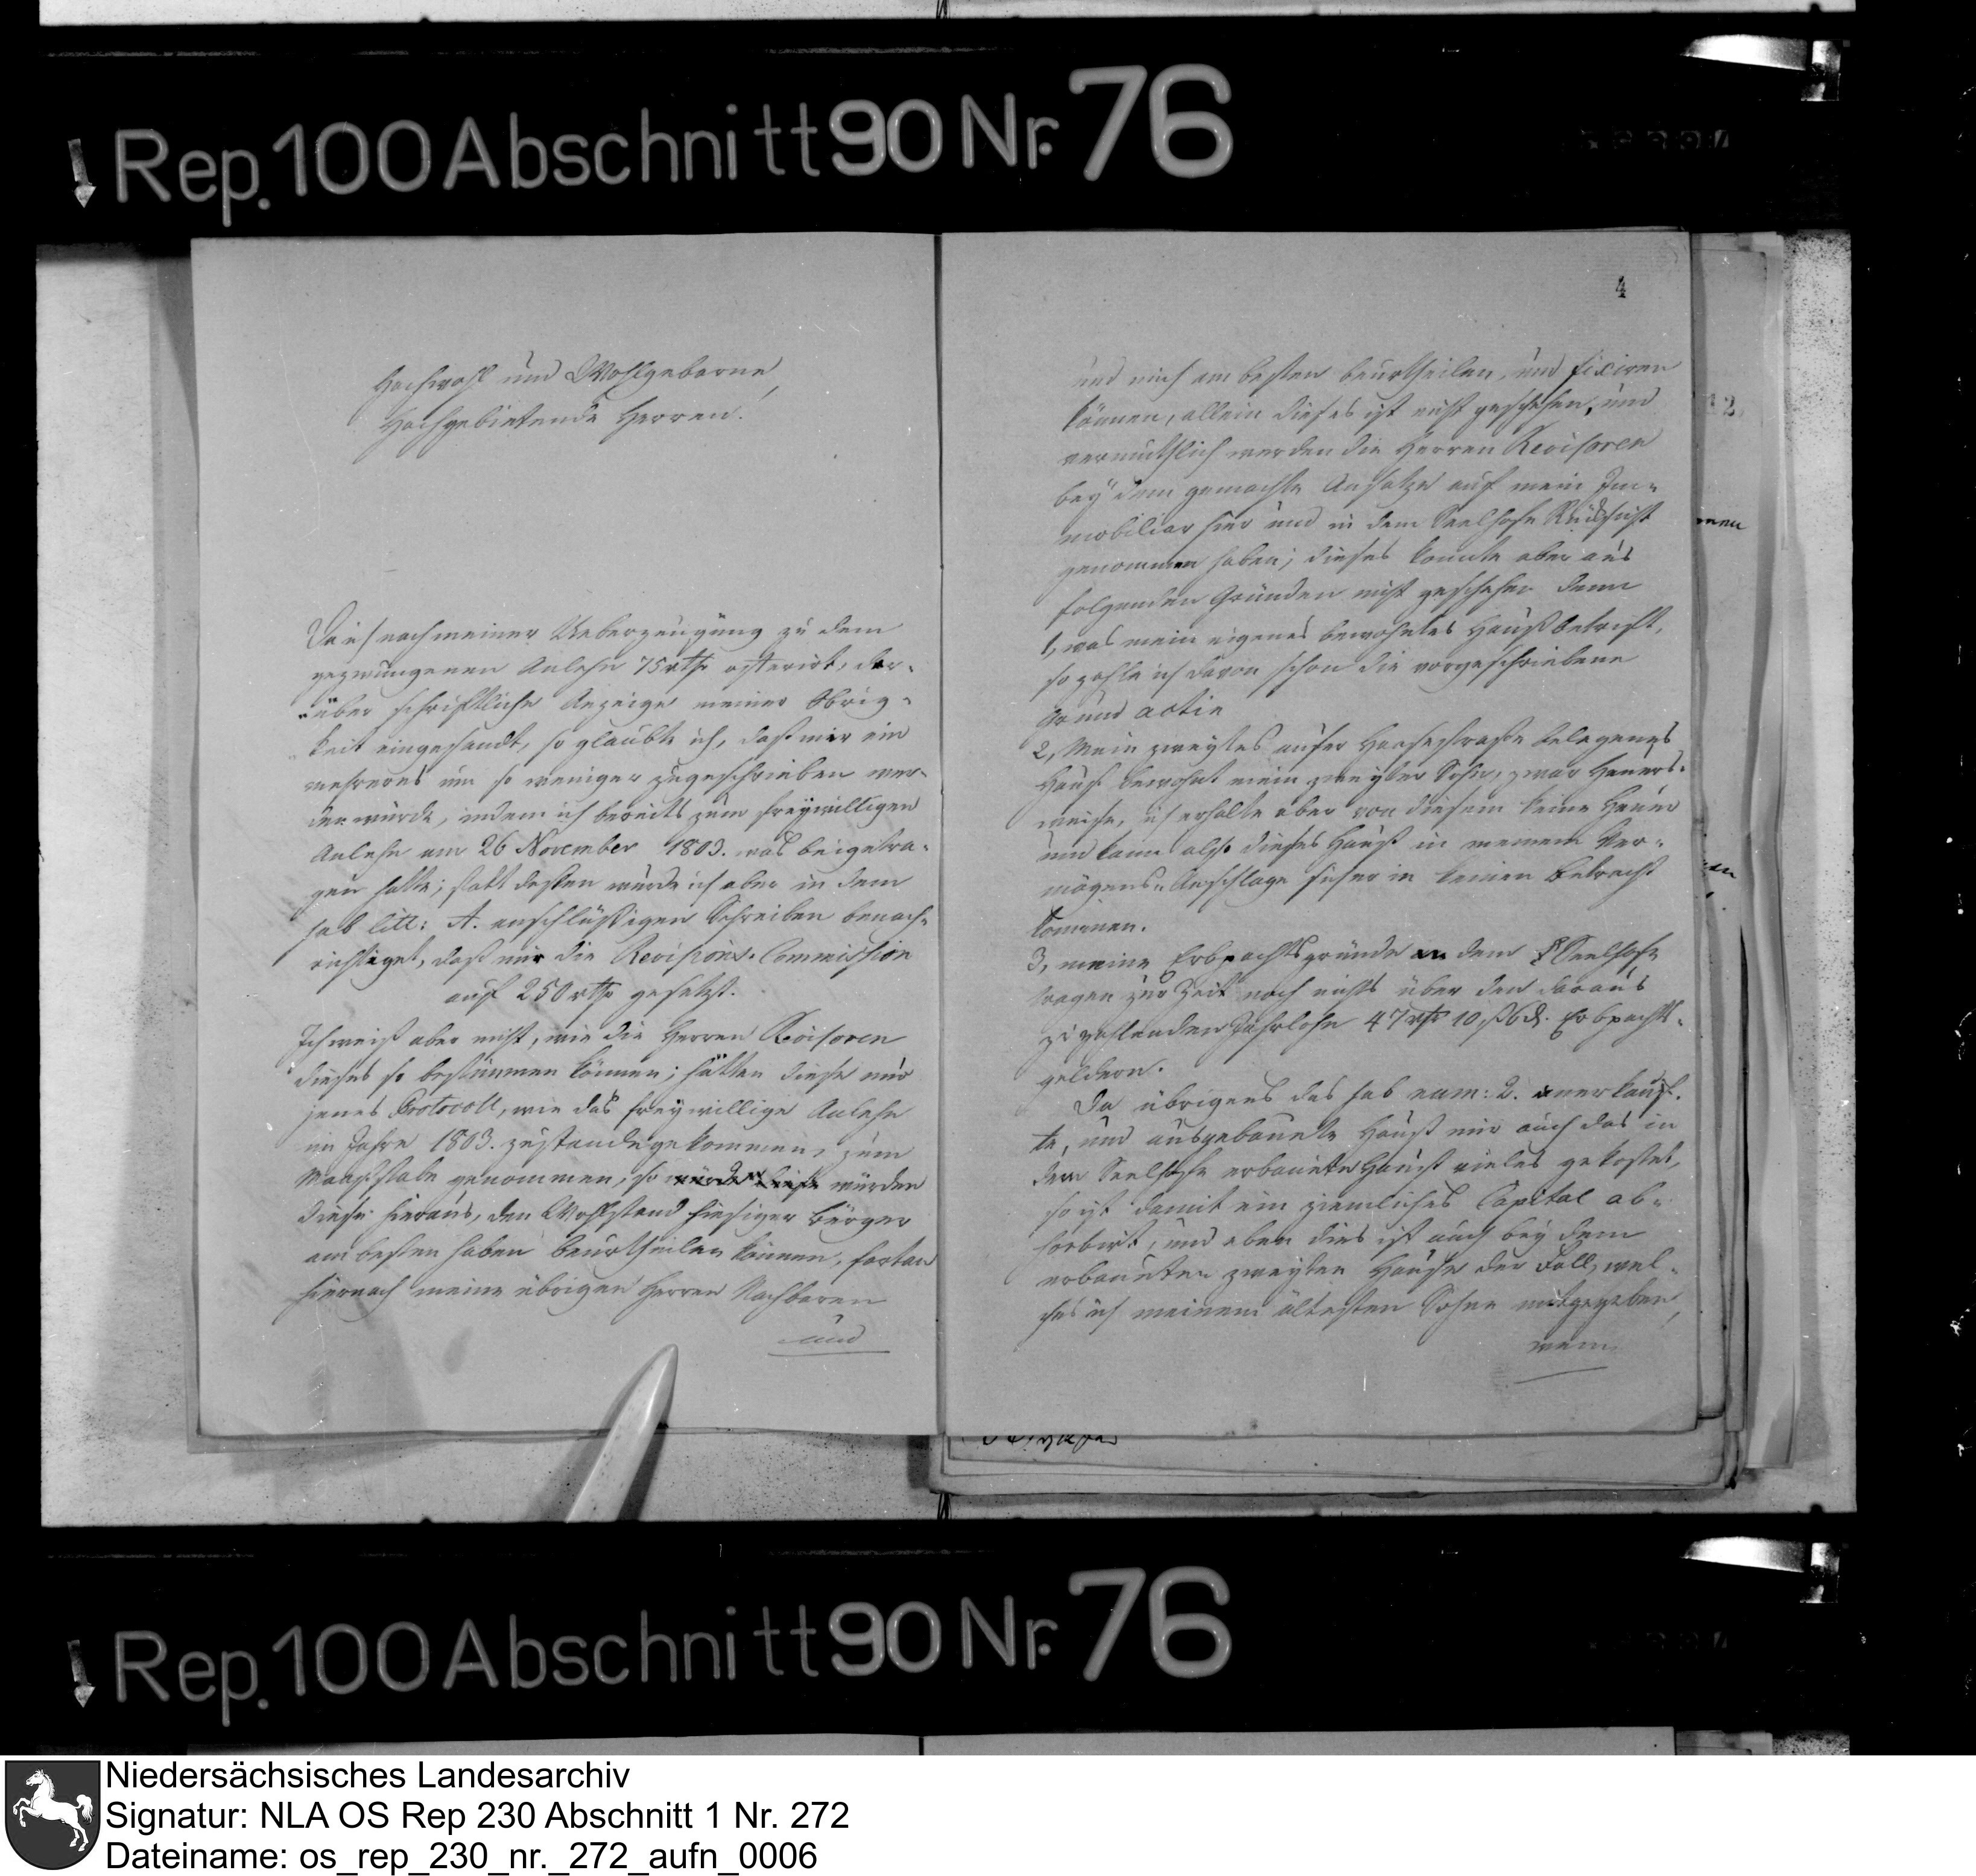 Rep. 100 Abschnitt 90 Nr. 76
Hochwohl und Wohlgeborne,
Hochgebietende Herren!
Da ich nach meiner Ueberzeugung zu dem
gezwungenen Anlehn 75 rthr offerirt, dar-
über schriftliche Anzeige meiner Obrig-
keit eingesandt, so glaubte ich, daß mir ein
mehreres um so weniger zugeschrieben wer-
den würde, indem ich bereits zum freywilligen
Anlehn am 26 November 1803. was beigetra-
gen hatte; statt dessen wurde ich aber in dem
sub litt: A. anschlüßigen Schreiben benach-
richtiget, daß mir die Revisions-Commission
auf 250 rthr gesetzt.
Ich weiß aber nicht, wie die Herren Revisoren
dieses so bestimmen können; hätten diese nur
jenes Protocoll, wie das freywillige Anlehn
im Jahre 1803. zustande gekommen, zum
Maaßstabe genommen, so würden diese würden
diese hieraus, den Wohlstand hiesiger Bürger
am besten haben beurtheilen können, fortan
hiernach meine übrigen Herren Nachbaren
und
4
und mich am besten beurtheilen, und fixiren
können, allein dieses ist nicht geschehen, und
vermuthlich werden die Herren Revisoren
bey dem gemachten Ansatze auf mein Im-
mobiliar hier und in dem Seelhofe Rücksicht
genommen haben; dieses konnte aber aus
folgenden Gründen nicht geschehen denn
1, was mein eigenes bewohntes Hauß betrift,
so zahle ich davon schon die vorgeschriebene
Grund actie
2, Mein zweytes auser Haasestraße belegenes
Hauß bewohnt mein zweyter Sohn, zwar Heuers-
weise, ich erhalte aber von diesem keine Heuer
und kann also dieses Hauß in meinem Ver-
mögens-Anschlage hier in keinen Betracht
kommen.
3, meine Erbpachtsgründe an dem Seelhofe
tragen zur Zeit noch nichts über den daraus
zu zahlenden Jahrlohn 47 rthr 10 ß 6 d. Erbpachts-
geldern.
Da übrigens das sub num: 2. anerkauf-
te, und ausgebauete Hauß mir auch das in
dem Seelhofe erbauete Hauß vieles gekostet,
so ist damit ein ziemliches Capital ab-
sorbirt, und eben dies ist auch bey dem
erbaueten zweyten Hause der Fall, wel-
ches ich meinem ältesten Sohne mitgegeben,
wenn
Rep. 100 Abschnitt 90 Nr. 76
Niedersächsisches Landesarchiv
Signatur: NLA OS Rep 230 Abschnitt 1 Nr. 272
Dateiname: os_rep_230_nr._272_aufn_0006